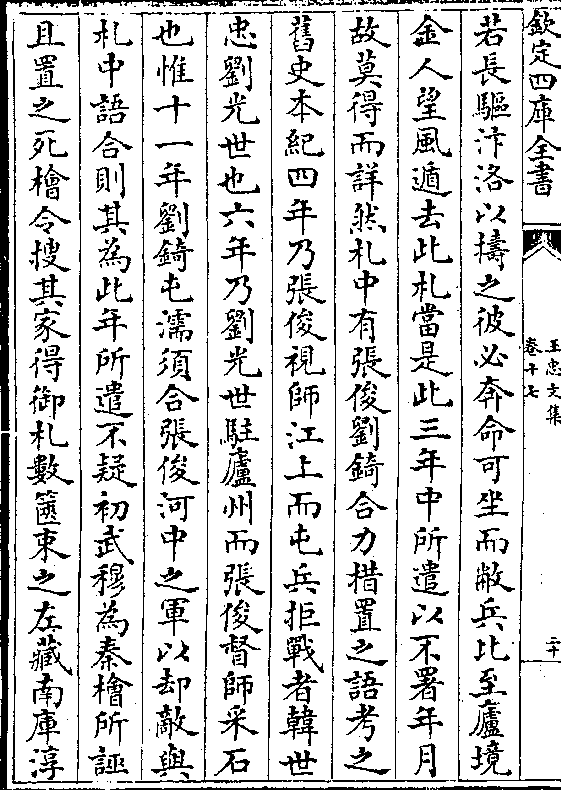 欽定四庫全書
王忠文集
卷十七
二十
若長驅汴洛以擣之彼必奔命可坐而敝兵比至廬境
金人望風遁去此札當是此三年中所遣以不署年月
故莫得而詳然札中有張俊劉錡合力措置之語考之
舊史本紀四年乃張俊視師江上而屯兵拒戰者韓世
忠劉光世也六年乃劉光世駐廬州而張俊督師采石
也惟十一年劉錡屯濡須合張俊河中之軍以却敵與
札中語合則其為此年所遣不疑初武穆為秦檜所誣
且置之死檜令搜其家得御札數篋束之左藏南庫淳